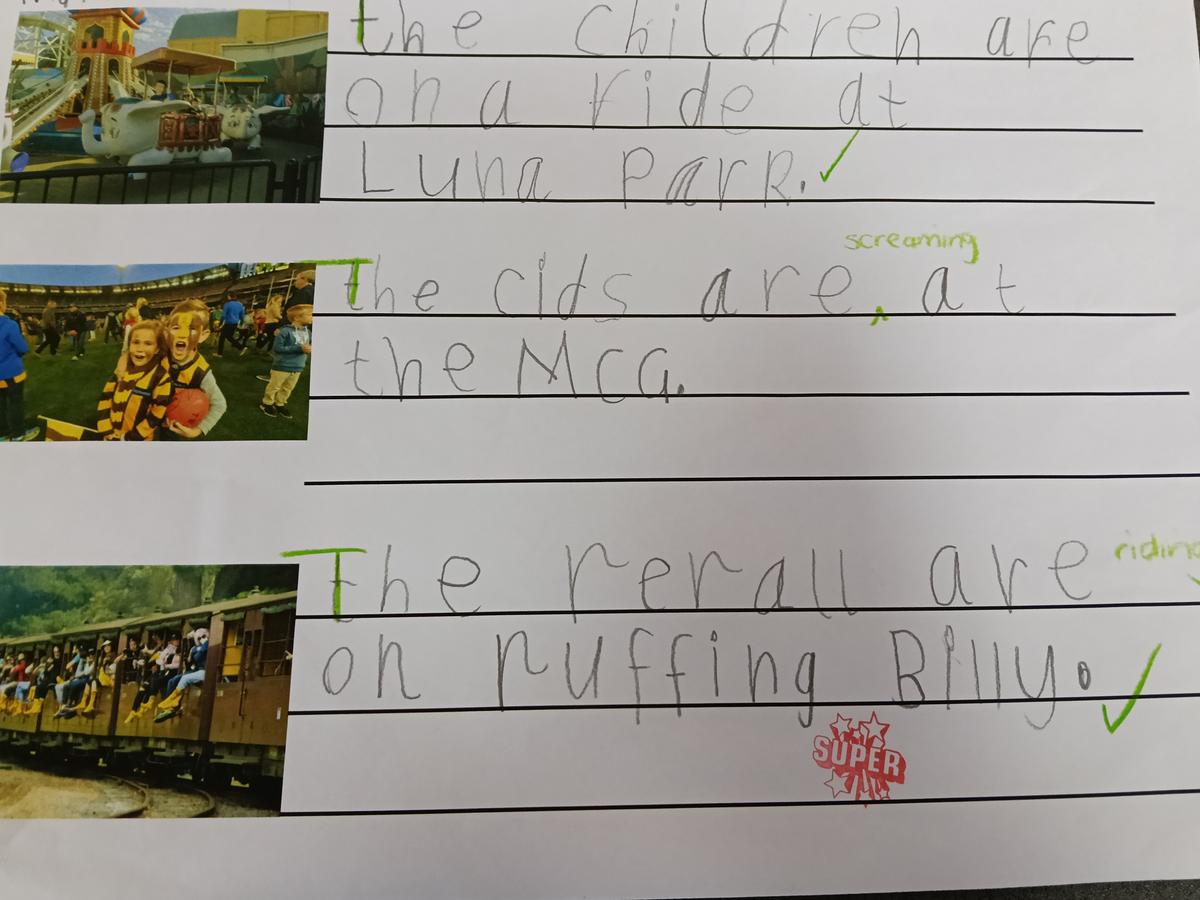 the children are
on a ride at
Luna Park.
screaming
The cids are at
the MCG.
The rerall are
riding
on ruffing Billy.
SUPER